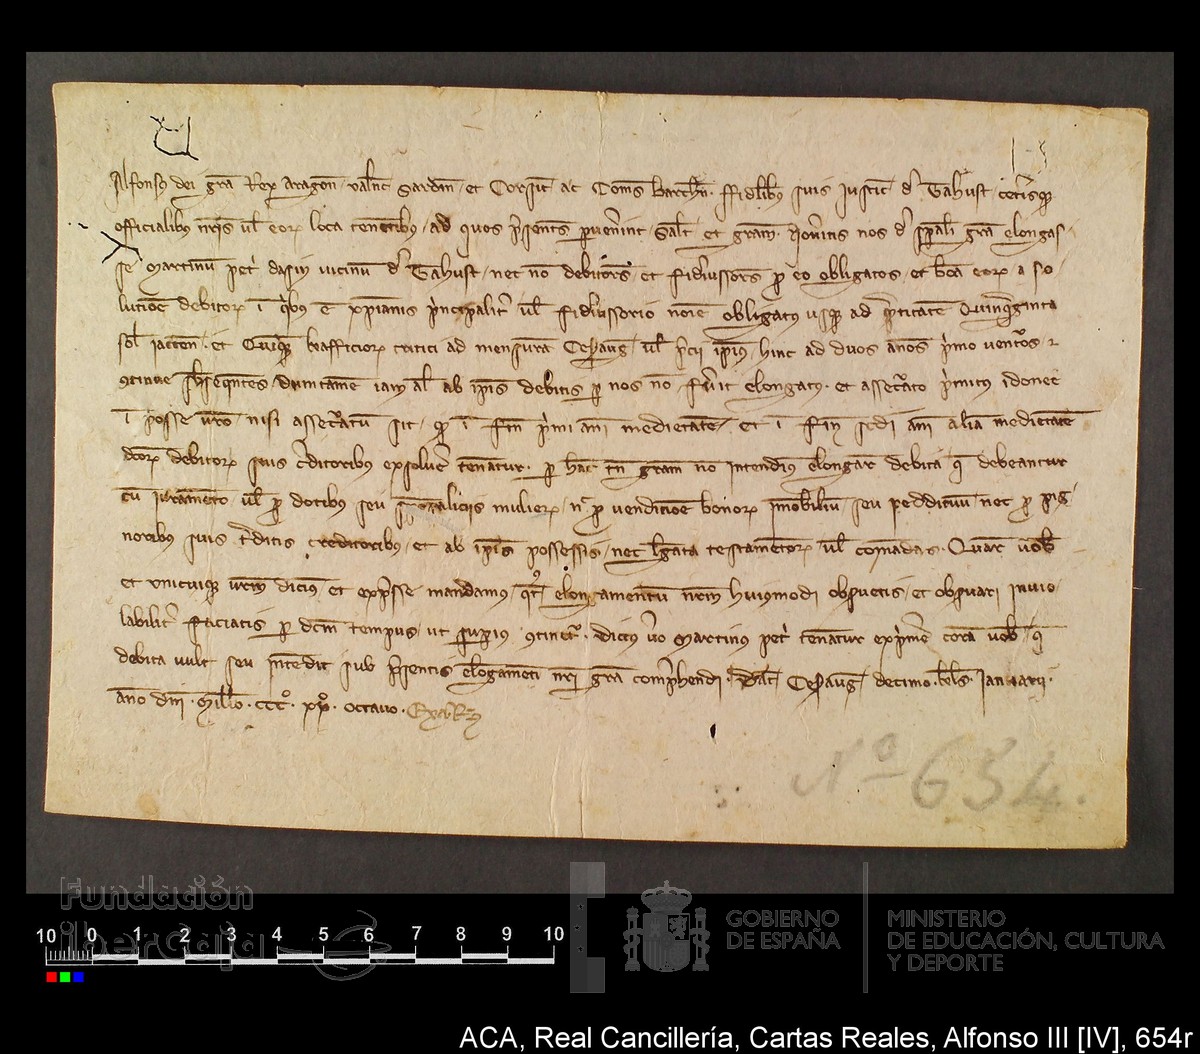 Alfonsus dei gra Rex Aragon Valenc Sardin et Corsic ac Comes barchn. ffidelib suis justic de Tahust ceterisq
officialibus nris vl eorum loca tenentibus ad quos presentes pervenerint Salt et gram. Noveritis nos de speciali gra elongas
se Martinum petri vicinum de Tahust nec non debitores et fideiussores pro eo obligatos et bona eorum a so
lucione debitorum in quibus est xpianis principaliter vl fideiussorio noie obligatus usq ad quantitatem Quinquaginta
sol iaccen. et Quinq kafficiorum tritici ad mensuram Cesaraug vl precii ipius hinc ad duos annos primo venturos et
continue subsequentes dum tamen iam al ab ipis debitis per nos non fuerit elongatus. et assecurato primitus idonee
in posse vro nisi assecuratum sit quod in fine primi anni medietatem et in fine secundi anni aliam medietatem
dcorum debitorum suis creditoribus exsolvere teneatur. per hanc tn gram non intendimus elongare debita que debeantur
cum iuramento vl pro dotibus seu mulierum nec pro vendicione bonorum immobilium seu nec pro pig
noribus suis traditis creditoribus et ab ipis possessis nec legata testamentorum vl comandas. Quare vob
et unicuiq vrum dicimus et expresse mandamus quatenus elongamentum nrum huiusmodi observetis et observari invio
labiliter faciatis per dcm tempus ut superius continetur. dictus vero Martinus petri teneatur exprimere coram vob que
debita vult seu intendit sub presentis elongamenti nri gra comprehendi. Dat Cesaraug decimo kls Januarii.
anno dni Millo. CCC. xx. octavo.
Nº 654.
Fundación
iberCaja
10 0 1 2 3 4 5 6 7 8 9 10
GOBIERNO
DE ESPAÑA
MINISTERIO
DE EDUCACIÓN, CULTURA
Y DEPORTE
ACA, Real Cancillería, Cartas Reales, Alfonso III [IV], 654r